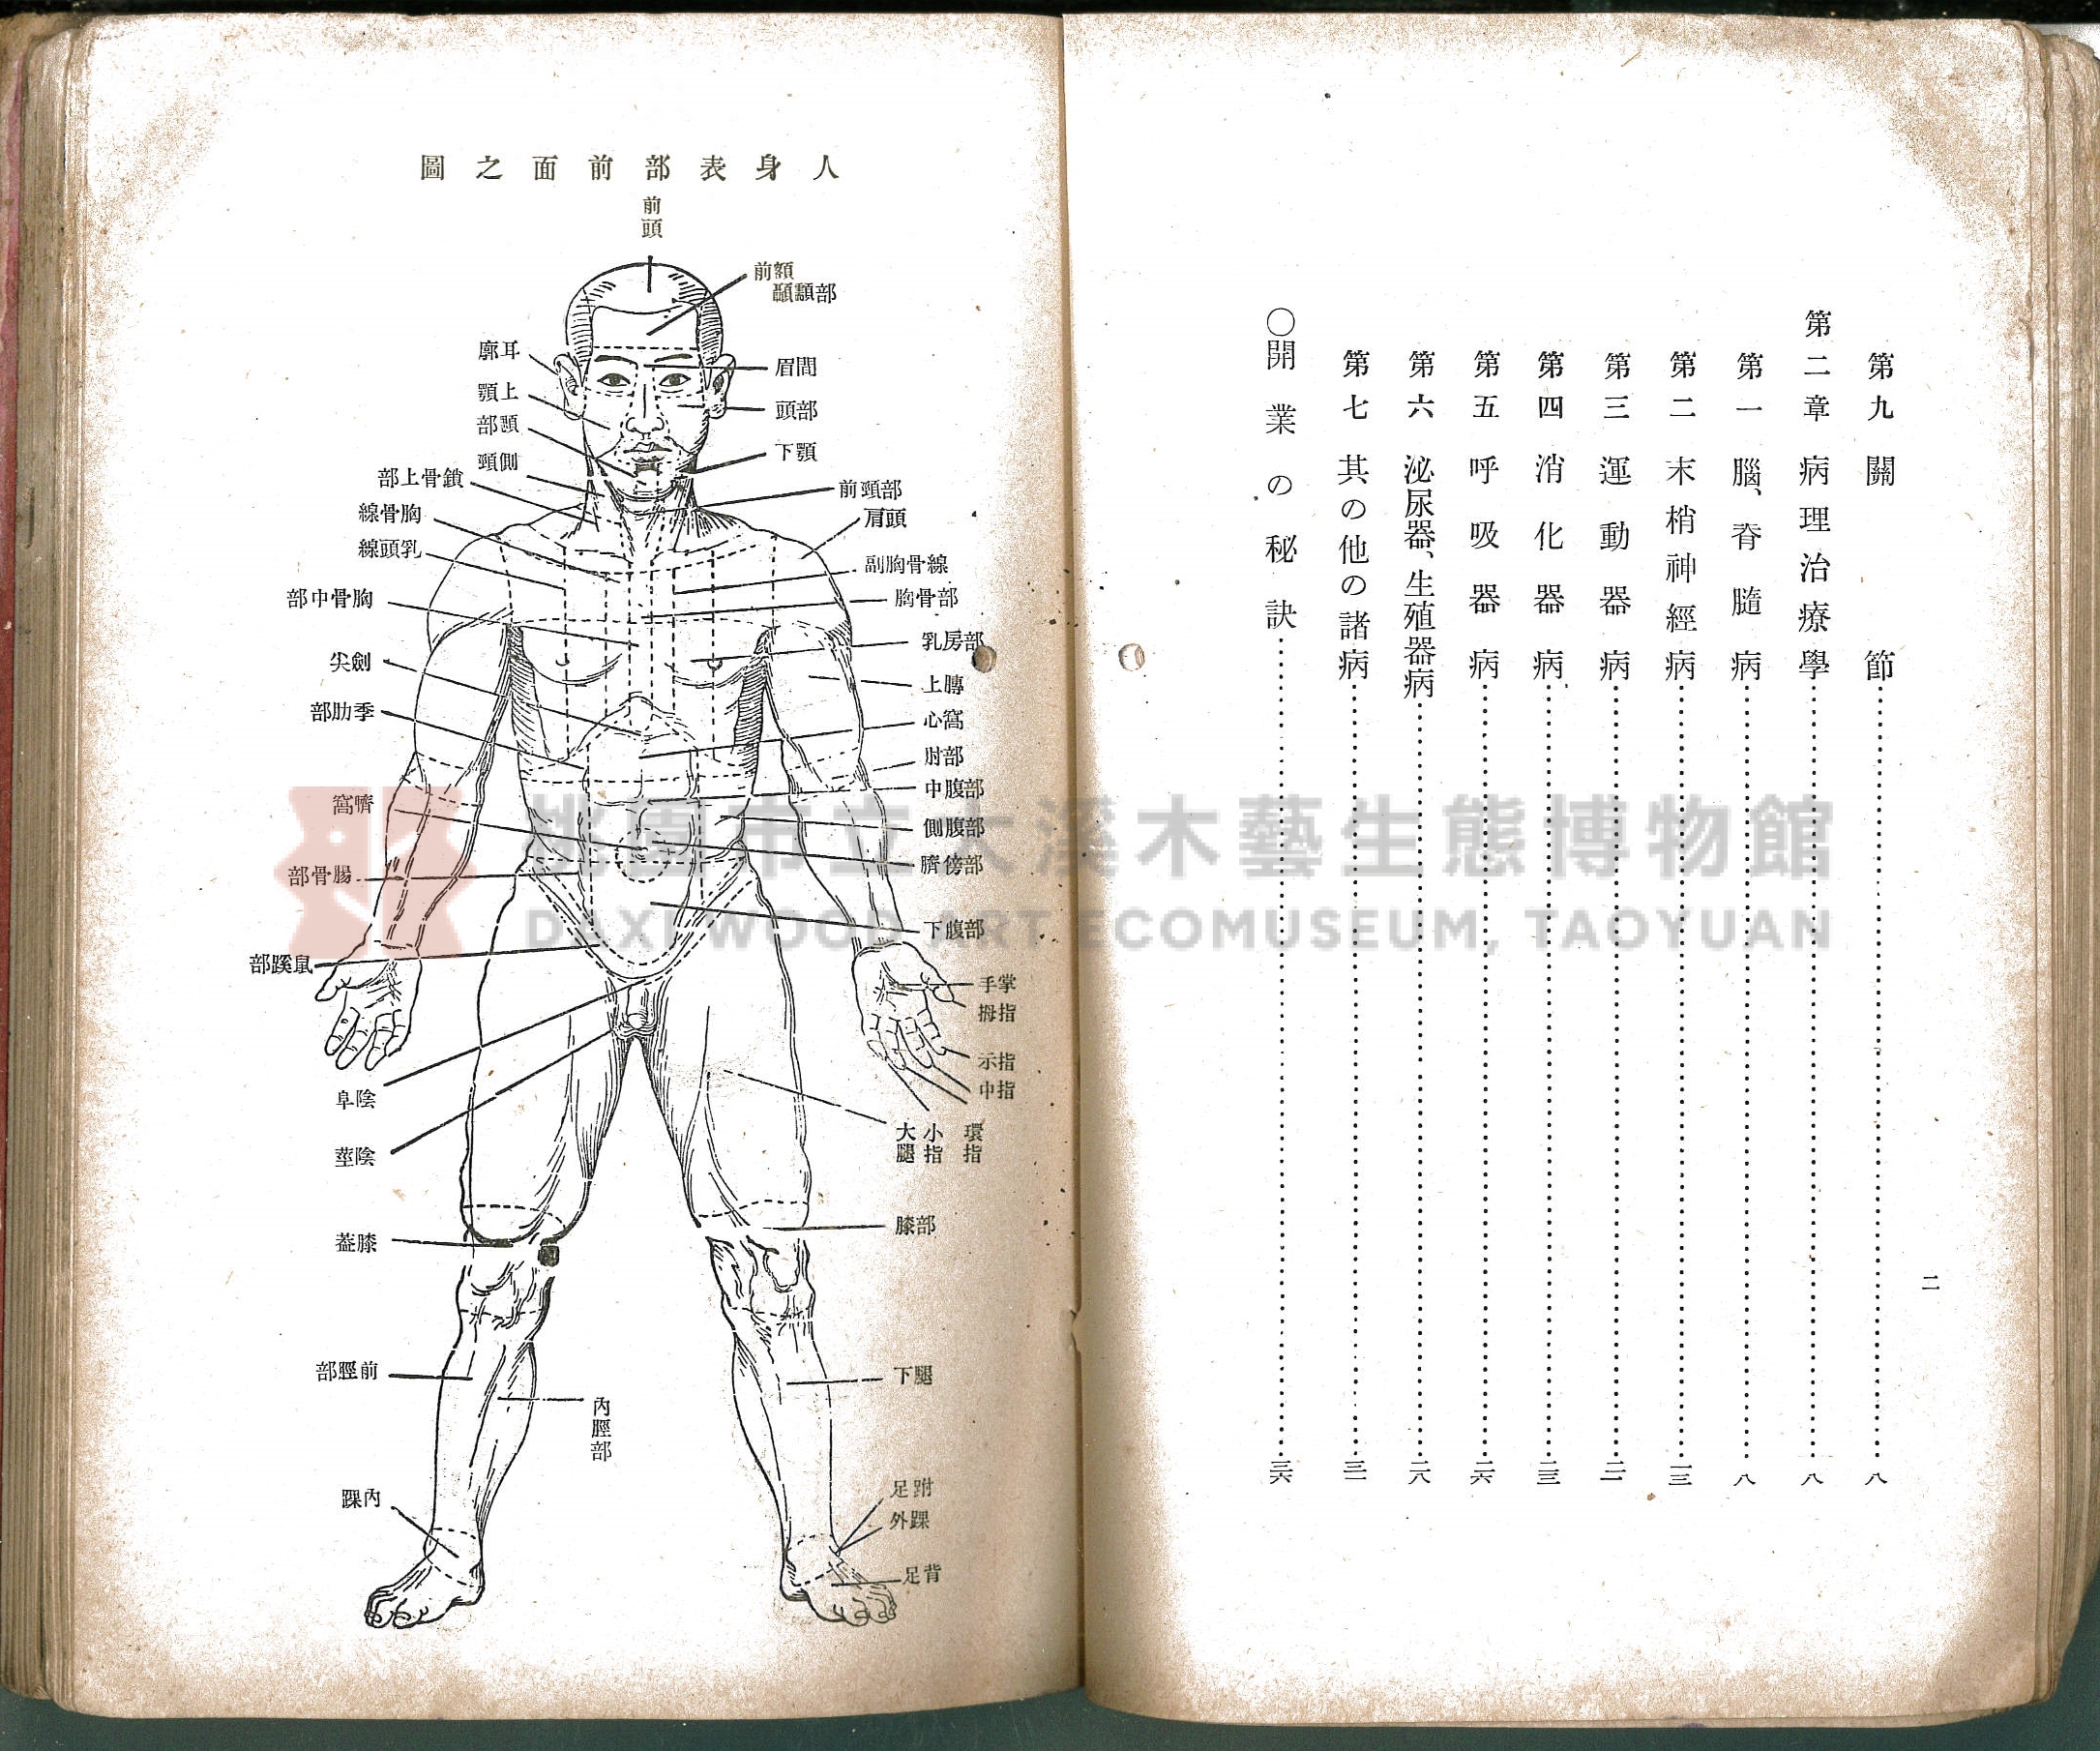 二
第九 關節……八
第二章 病理治療學……八
第一 腦、脊髓病……八
第二 末梢神經病……一三
第三 運動器病……二一
第四 消化器病……二三
第五 呼吸器病……二六
第六 泌尿器、生殖器病……二八
第七 其の他の諸病……三一
〇開業の秘訣……三六
人身表部前面之圖
前頭
前額
顳顬部
眉間
頭部
下顎
前頸部
肩頭
副胸骨線
胸骨部
乳房部
上膊
心窩
肘部
中腹部
側腹部
臍傍部
下腹部
手掌
拇指
示指
中指
環指
小指
大腿
膝部
下腿
足跗
外踝
足背
耳廓
上顎
側頸
鎖骨上部
胸骨線
乳頭線
胸骨中部
劍尖
季肋部
臍窩
腸骨部
鼠蹊部
陰阜
陰莖
膝蓋
前脛部
內脛部
內踝
桃園市立大溪木藝生態博物館
DAXI WOOD ART ECOMUSEUM, TAOYUAN